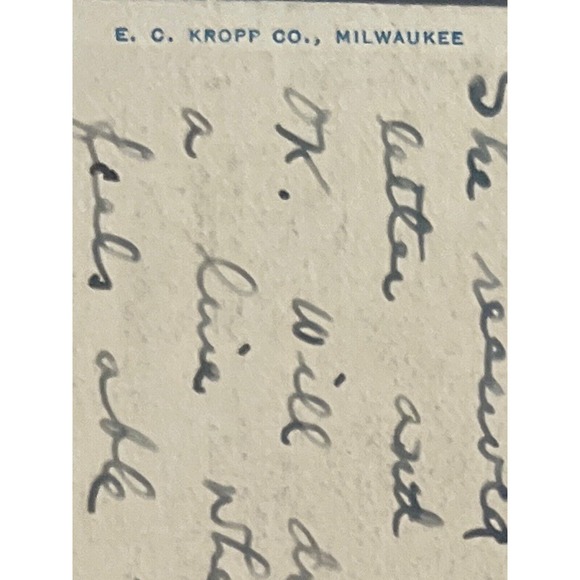 E. C. KROPP CO., MILWAUKEE
She received
letter and
OK. Will
a line
feels able